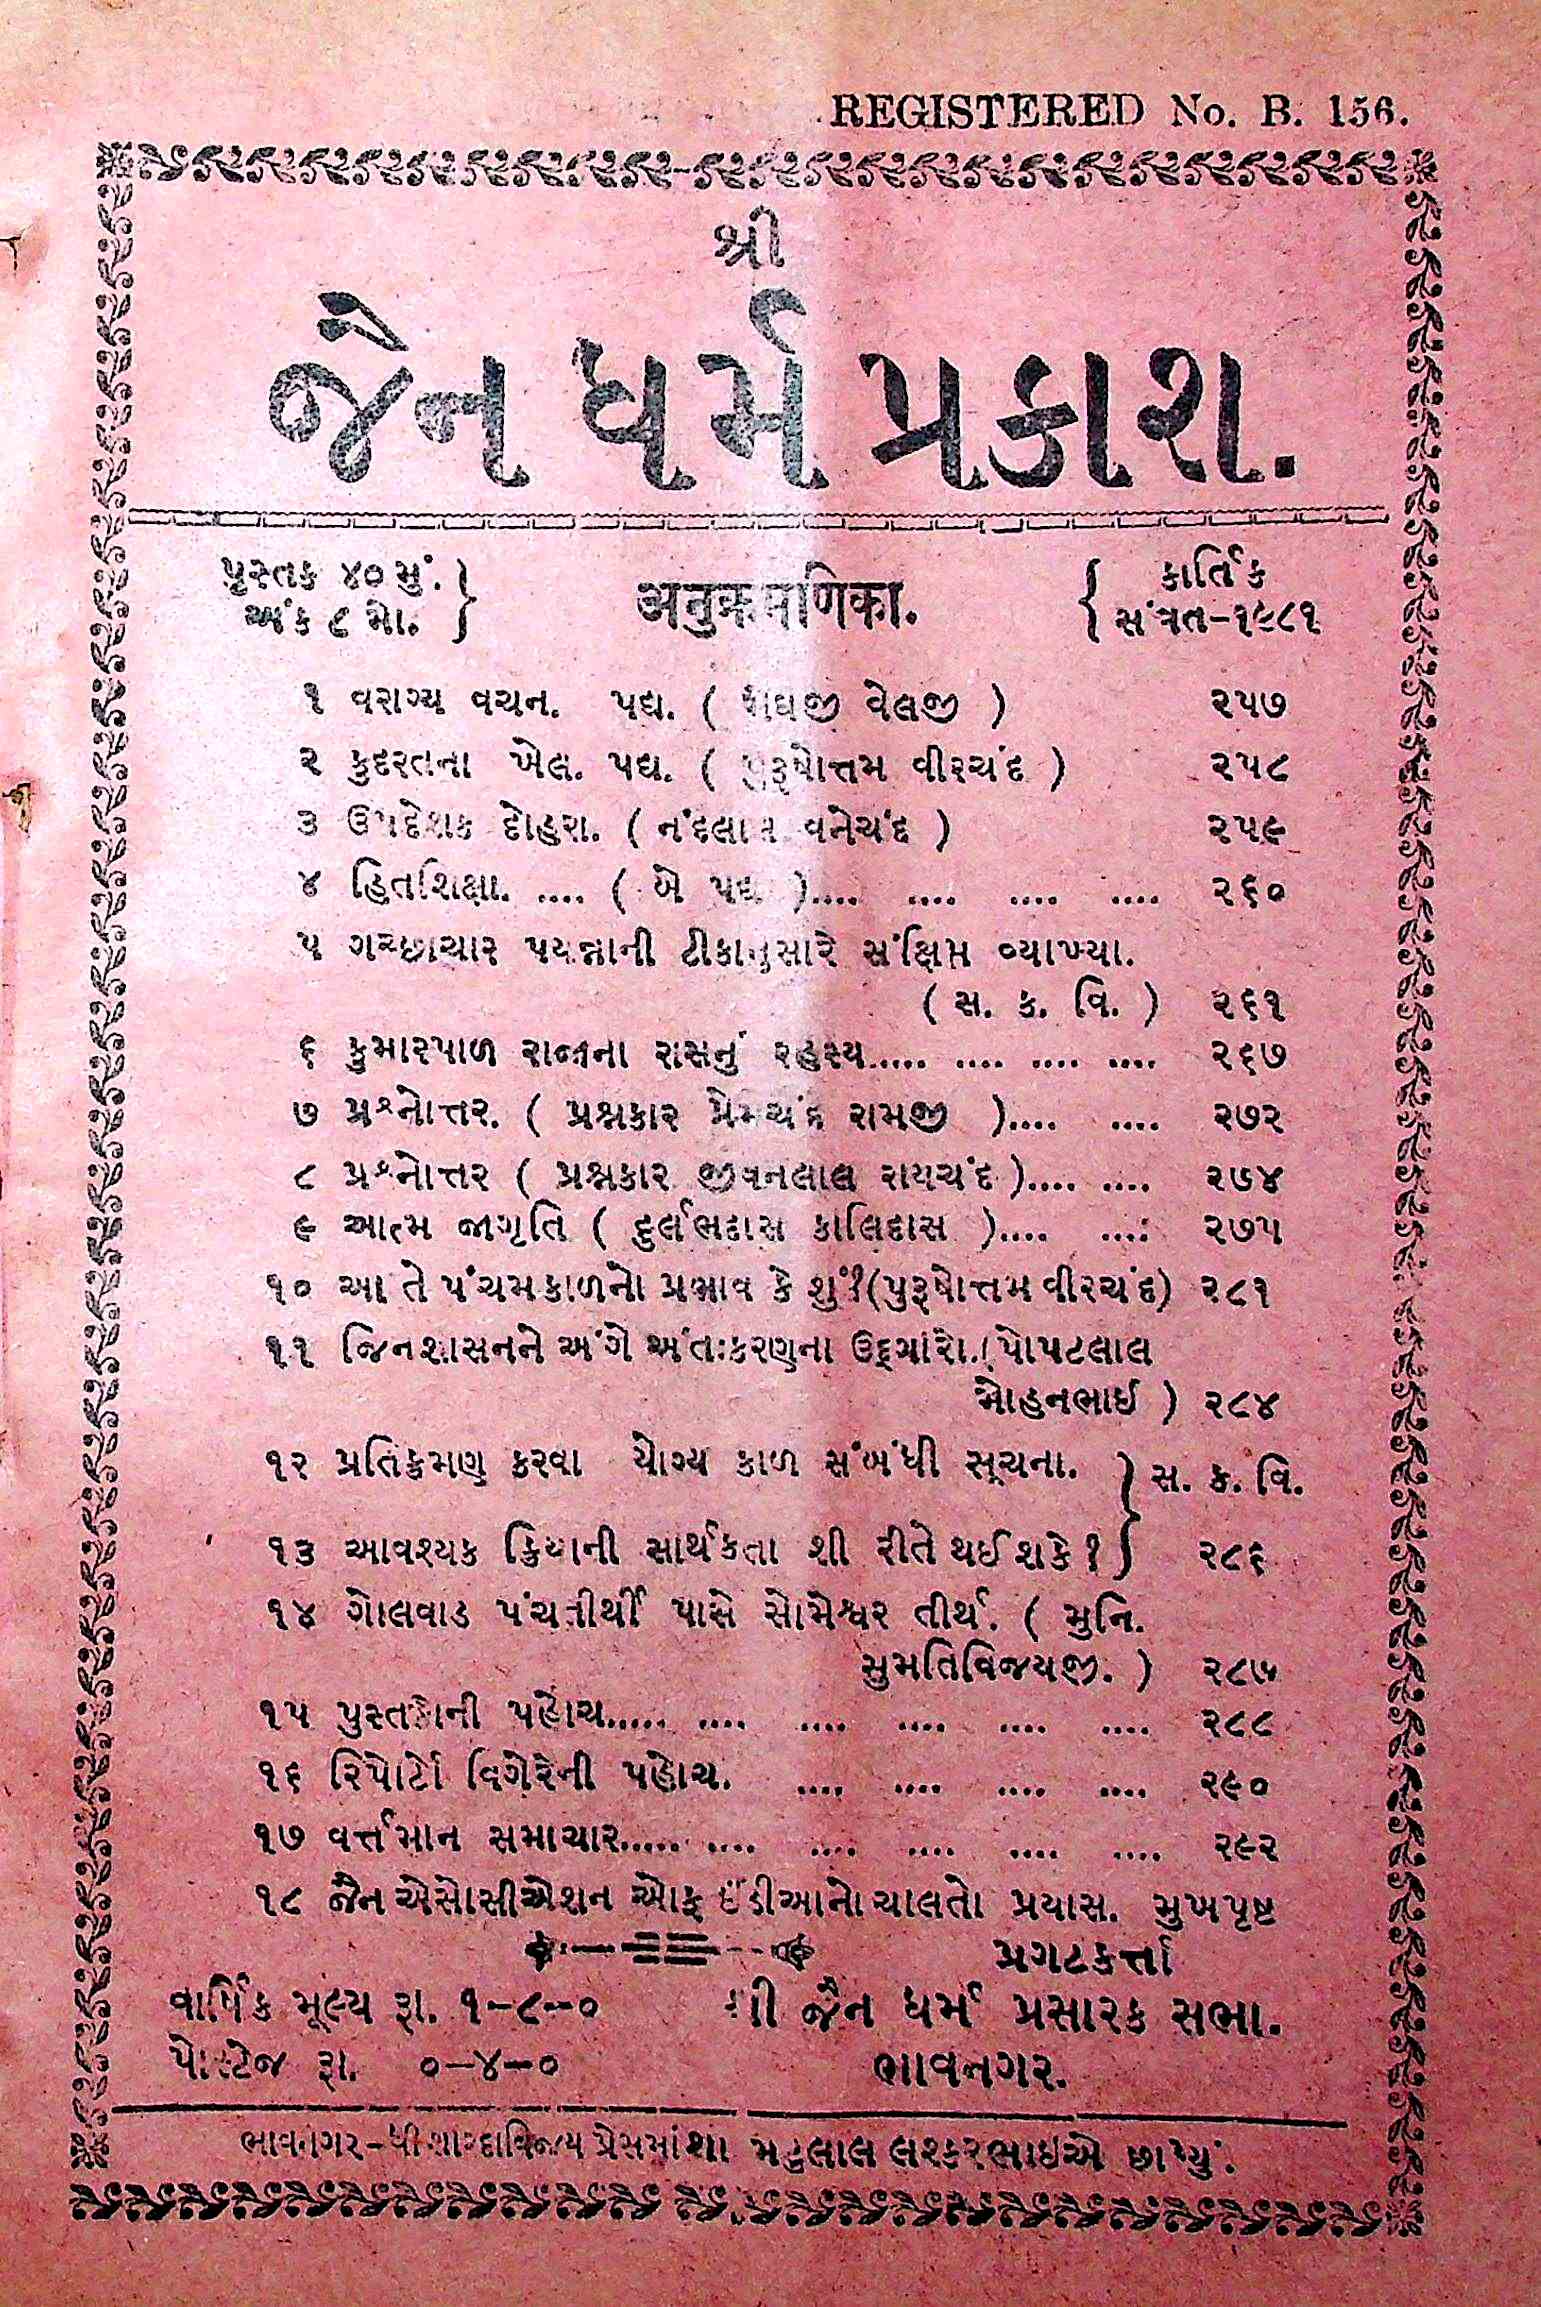 REGISTERED No. B. 156.
શ્રી
જૈન ધર્મ પ્રકાશ.
પુસ્તક ૪૦ મું.
અંક ૮ મો.
अनुक्रमणिका.
કાર્તિક
સંવત-૧૯૮૧
૧ વરાગ્ય વચન. પદ્ય. ( વેલજી ) ૨૫૭
૨ કુદરતના ખેલ. પદ્ય. ( પુરૂષોત્તમ વીરચંદ ) ૨૫૮
૩ ઉપદેશક દોહરા. ( નંદલાલ વનેચંદ ) ૨૫૯
૪ હિતશિક્ષા. .... ( બે પદ્ય ).... .... .... .... ૨૬૦
૫ ગચ્છાચાર પયન્નાની ટીકાનુસારે સંક્ષિપ્ત વ્યાખ્યા.
( સ. ક. વિ. ) ૨૬૧
૬ કુમારપાળ રાજાના રાસનું રહસ્ય..... .... .... .... ૨૬૭
૭ પ્રશ્નોત્તર. ( પ્રશ્નકાર પ્રેમચંદ રામજી ).... .... ૨૭૨
૮ પ્રશ્નોત્તર ( પ્રશ્નકાર જીવનલાલ રાયચંદ ).... .... ૨૭૪
૯ આત્મ જાગૃતિ ( દુર્લભદાસ કાલિદાસ ).... .... ૨૭૫
૧૦ આ તે પંચમકાળનો પ્રભાવ કે શું?(પુરૂષોત્તમ વીરચંદ) ૨૮૧
૧૧ જિનશાસનને અંગે અંતઃકરણના ઉદ્ગારો.(પોપટલાલ
મોહનભાઈ ) ૨૮૪
૧૨ પ્રતિક્રમણ કરવા યોગ્ય કાળ સંબંધી સૂચના. } સ. ક. વિ.
૧૩ આવશ્યક ક્રિયાની સાર્થકતા શી રીતે થઈ શકે ? } ૨૮૬
૧૪ ગોલવાડ પંચતીર્થી પાસે સોમેશ્વર તીર્થ. ( મુનિ.
સુમતિવિજયજી. ) ૨૮૭
૧૫ પુસ્તકોની પહોચ..... .... .... .... .... .... ૨૮૮
૧૬ રિપોર્ટો વિગેરેની પહોચ. .... .... .... .... ૨૯૦
૧૭ વર્ત્તમાન સમાચાર..... .... .... .... .... .... ૨૯૨
૧૮ જૈન એસોસીએશન ઓફ ઇંડીઆનો ચાલતો પ્રયાસ. મુખપૃષ્ટ
પ્રગટકર્ત્તા
વાર્ષિક મૂલ્ય રૂા. ૧-૮-૦
શ્રી જૈન ધર્મ પ્રસારક સભા.
પોસ્ટેજ રૂા. ૦-૪-૦
ભાવનગર.
ભાવનગર-ધી શારદાવિજય પ્રેસમાં શા મટુલાલ લશ્કરભાઇએ છાપ્યું.